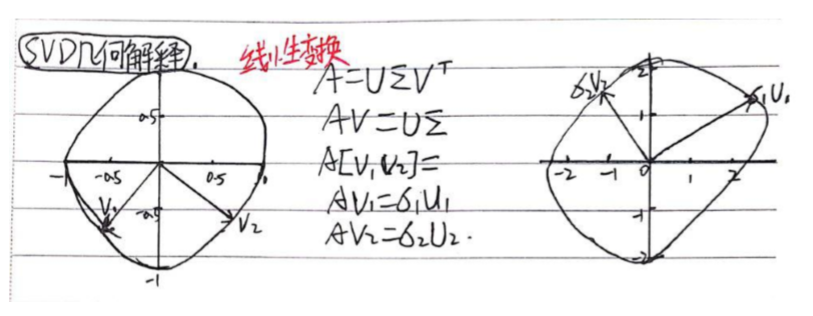 SVD几何解释.
线性变换
A=UΣVᵀ
AV=UΣ
A[V₁V₂]=
AV₁=6₁U₁
AV₂=6₂U₂.
0.5
-1 -0.5 0.5 1
V₁ -0.5 V₂
-1
2
6₂V₂ 6₁U₁
1
-2 -1 0 1 2
-1
-2